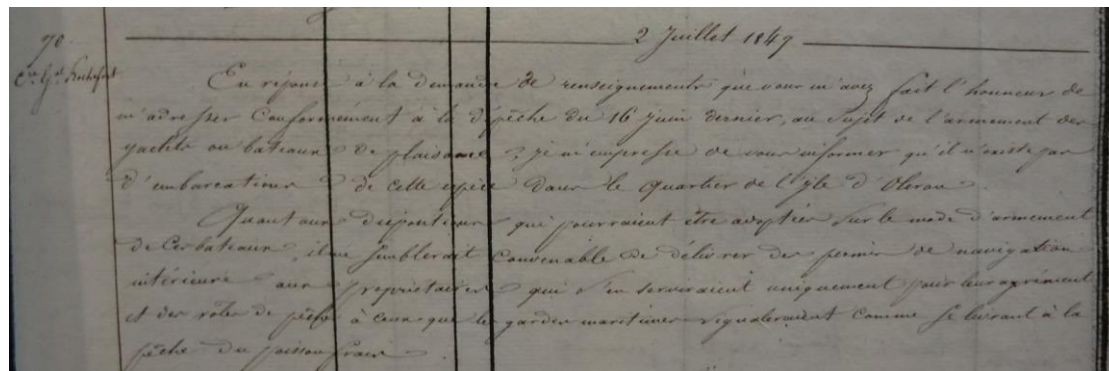 70
2 Juillet 1849
Cre Gal Rochefort
En réponse à la demande de renseignements que vous m'avez fait l'honneur de
m'adresser conformément à la dépêche du 16 juin dernier, au sujet de l'armement des
yachts ou bateaux de plaisance, je m'empresse de vous informer qu'il n'existe pas
d'embarcations de cette espèce dans le quartier de l'yle d'Oleron.
Quant aux dispositions qui pourraient être adoptées sur le mode d'armement
de ces bateaux, il me semblerait convenable de délivrer des permis de navigation
intérieure aux propriétaires qui s'en serviraient uniquement pour leur agrément
et des rôles de pêche à ceux que les gardes maritimes signaleraient comme se livrant à la
pêche du poisson frais.